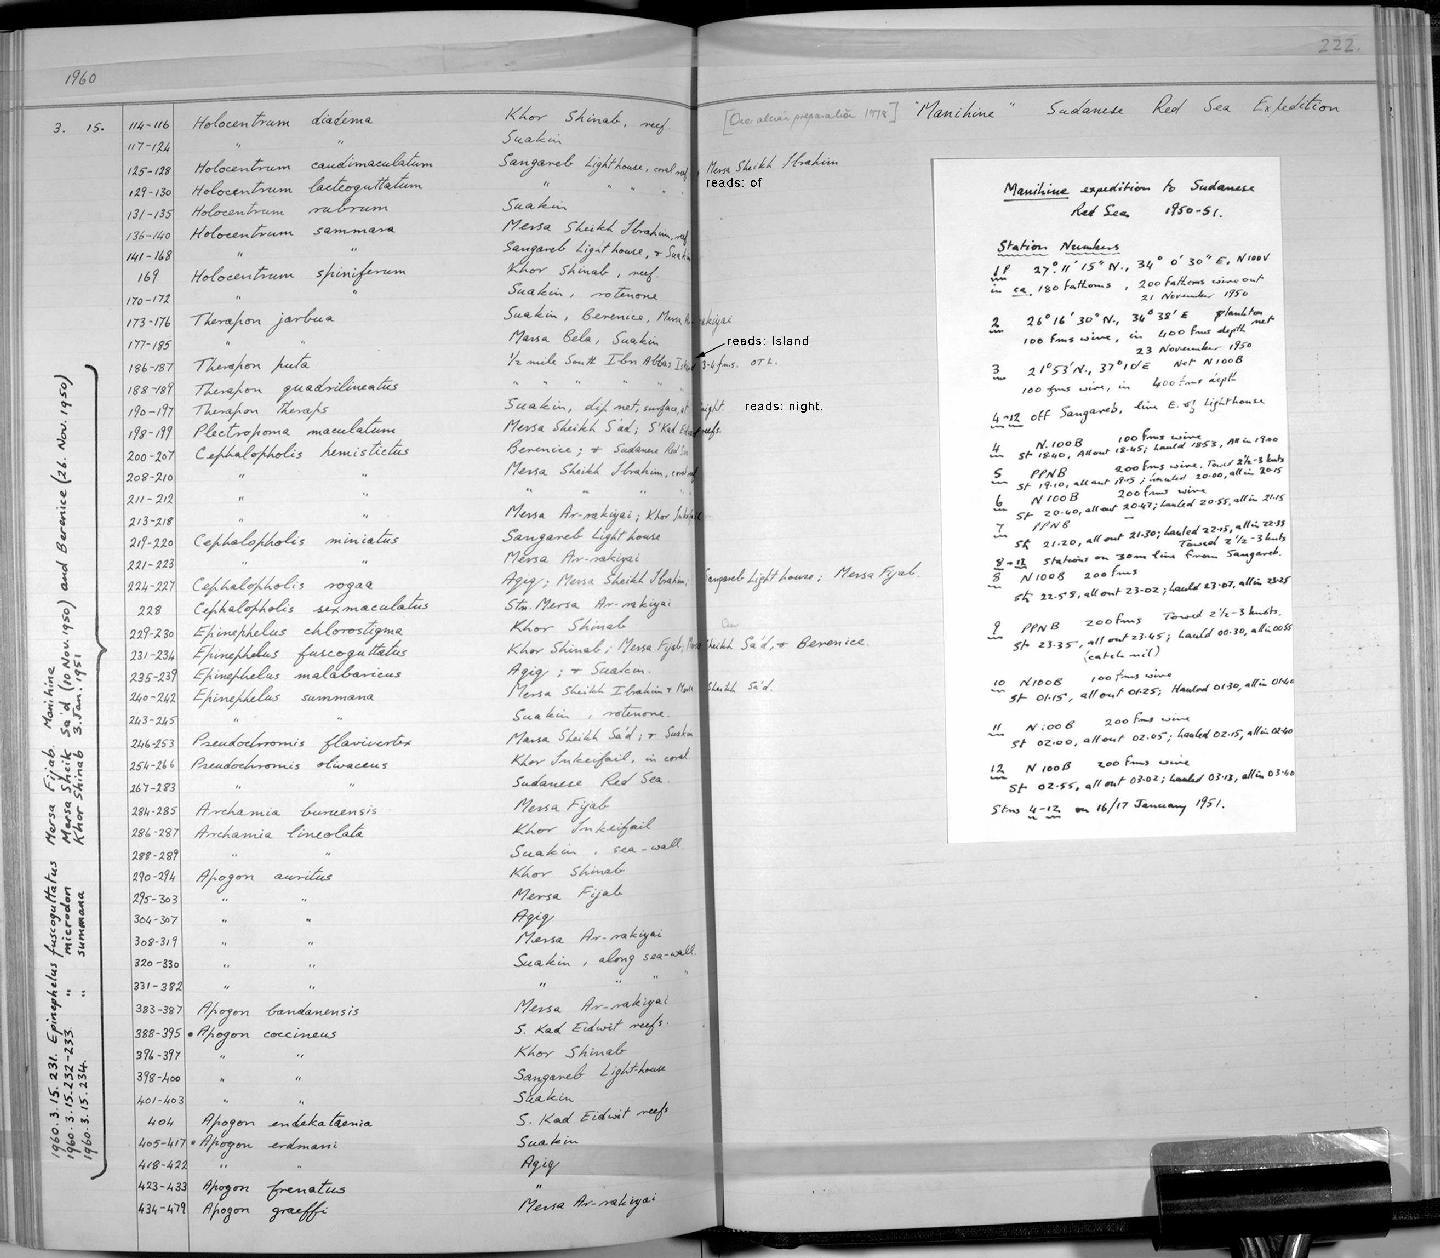 222.
1960
[ preparation 1978] "Manihine" Sudanese Red Sea Expedition
3. 15. 114-116 Holocentrum diadema Khor Shinab, reef
117-124 " " Suakin
125-128 Holocentrum caudimaculatum Sangareb Lighthouse, coral reef, Mersa Sheikh Ibrahim
reads: of
129-130 Holocentrum lacteoguttatum " " " "
131-135 Holocentrum rubrum Suakin
136-140 Holocentrum sammara Mersa Sheikh Ibrahim, reef
141-168 " " Sangareb Lighthouse, & Suakin
169 Holocentrum spiniferum Khor Shinab, reef
170-172 " " Suakin, rotenone
173-176 Therapon jarbua Suakin, Berenice, Mersa Ar-rakiyai
177-185 " " Marsa Bela, Suakin
reads: Island
186-187 Therapon puta 1/2 mile South Ibn Abbas Island 3-4 fms. OTL.
188-189 Therapon quadrilineatus " " " " "
190-197 Therapon Theraps Suakin, dip net, surface, at night reads: night.
198-199 Plectropoma maculatum Mersa Sheikh Sa'd; S'Kad Eidwit reefs.
200-207 Cephalopholis hemistictus Berenice; & Sudanese Red Sea
208-210 " " Mersa Sheikh Ibrahim, coral reef
211-212 " " " " " "
213-218 " " Mersa Ar-rakiyai; Khor Inkeifail
219-220 Cephalopholis miniatus Sangareb Lighthouse
221-223 " " Mersa Ar-rakiyai
224-227 Cephalopholis rogaa Agig; Mersa Sheikh Ibrahim; Sangareb Lighthouse; Mersa Fijab.
228 Cephalopholis sexmaculatus Stn. Mersa Ar-rakiyai
229-230 Epinephelus chlorostigma Khor Shinab
231-234 Epinephelus fuscoguttatus Khor Shinab; Mersa Fijab; Mersa Sheikh Sa'd, & Berenice.
235-239 Epinephelus malabaricus Agig; & Suakin.
240-242 Epinephelus summana Mersa Sheikh Ibrahim & Mersa Sheikh Sa'd.
243-245 " " Suakin, rotenone.
246-253 Pseudochromis flavivertex Marsa Sheikh Sa'd; & Suakin
254-266 Pseudochromis olivaceus Khor Inkeifail, in coral
267-283 " " Sudanese Red Sea
284-285 Archamia buruensis Mersa Fijab
286-287 Archamia lineolata Khor Inkeifail
288-289 " " Suakin, sea-wall
290-294 Apogon auritus Khor Shinab
295-303 " " Mersa Fijab
304-307 " " Agig
308-319 " " Mersa Ar-rakiyai
320-330 " " Suakin, along sea-wall
331-382 " " " " "
383-387 Apogon bandanensis Mersa Ar-rakiyai
388-395 • Apogon coccineus S. Kad Eidwit reefs.
396-397 " " Khor Shinab
398-400 " " Sangareb Light-house
401-403 " " Suakin
404 Apogon endekataenia S. Kad Eidwit reefs
405-417 • Apogon erdmani Suakin
418-422 " " Agig
423-433 Apogon frenatus "
434-479 Apogon graeffi Mersa Ar-rakiyai
1960. 3. 15. 231. Epinephelus fuscoguttatus Mersa Fijab. Manihine
1960. 3. 15. 232-233. " microdon Mersa Sheik Sa'd (10 Nov. 1950) and Berenice (26. Nov. 1950)
1960. 3. 15. 234. " summana Khor Shinab 3. Jan. 1951
Manihine expedition to Sudanese
Red Sea 1950-51.
Station Numbers
1P 27° 11' 15" N., 34° 0' 30" E, N100V
in ca. 180 fathoms, 200 fathoms wire out
21 November 1950
2 26° 16' 30" N., 34° 38' E plankton net
100 fms wire, in 400 fms depth
23 November 1950
3 21° 53' N., 37° 10' E Net N100B
100 fms wire, in 400 fms depth
4-12 off Sangareb, line E. of Lighthouse
4 N.100B 100 fms wire
St 18.40, All out 18.45; hauld 18.53, All in 19.00
5 PPNB 200 fms wire. Towed 2½-3 knts
St 19.10, all out 19.15; hauled 20.00, all in 20.15
6 N100B 200 fms wire
St 20.40, all out 20.47; hauled 20.55, all in 21.15
7 PPNB
St 21.20, all out 21.30; hauled 22.15, all in 22.35
Towed 2½-3 knts
8-12 Stations on 30m line from Sangareb.
8 N100B 200 fms
St 22.58, all out 23.02; hauled 23.07, all in 23.25
9 PPNB 200 fms Towed 2½-3 knts.
St 23.35, all out 23.45; hauled 00.30, all in 00.55
(catch nil)
10 N100B 100 fms wire
St 01.15, all out 01.25; Hauled 01.30, all in 01.40
11 N100B 200 fms wire
St 02.00, all out 02.05; hauled 02.15, all in 02.40
12 N100B 200 fms wire
St 02.55, all out 03.02; hauled 03.13, all in 03.40
Stns 4-12 on 16/17 January 1951.